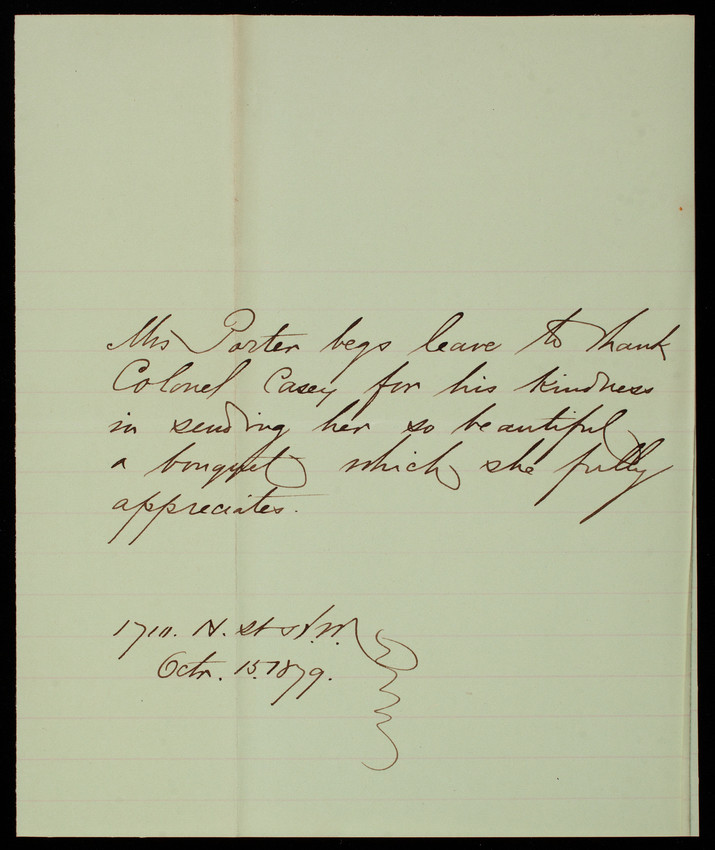 Mrs Porter begs leave to thank
Colonel Casey for his kindness
in sending her so beautiful
a bouquet which she fully
appreciates.
1710. N. st N.W.
Octr. 15. 1879.